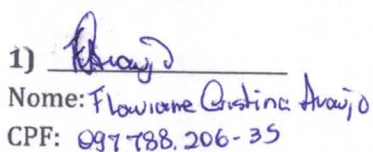 1) Araujo
Nome: Flaviane Cristina Araujo
CPF: 097788.206-35